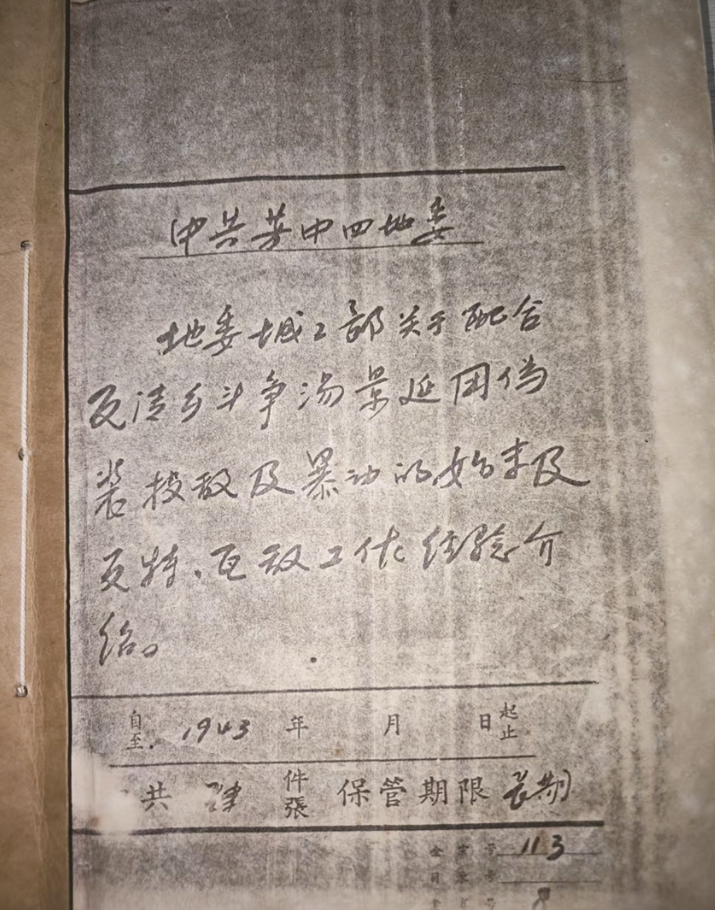 中共苏中四地委
地委城工部关于配合
反清乡斗争汤景延团伪
装投敌及暴动的始末及
反特、瓦敌工作经验介
绍。
自至 1943 年 月 日起止
共 件張 保管期限 長期
113